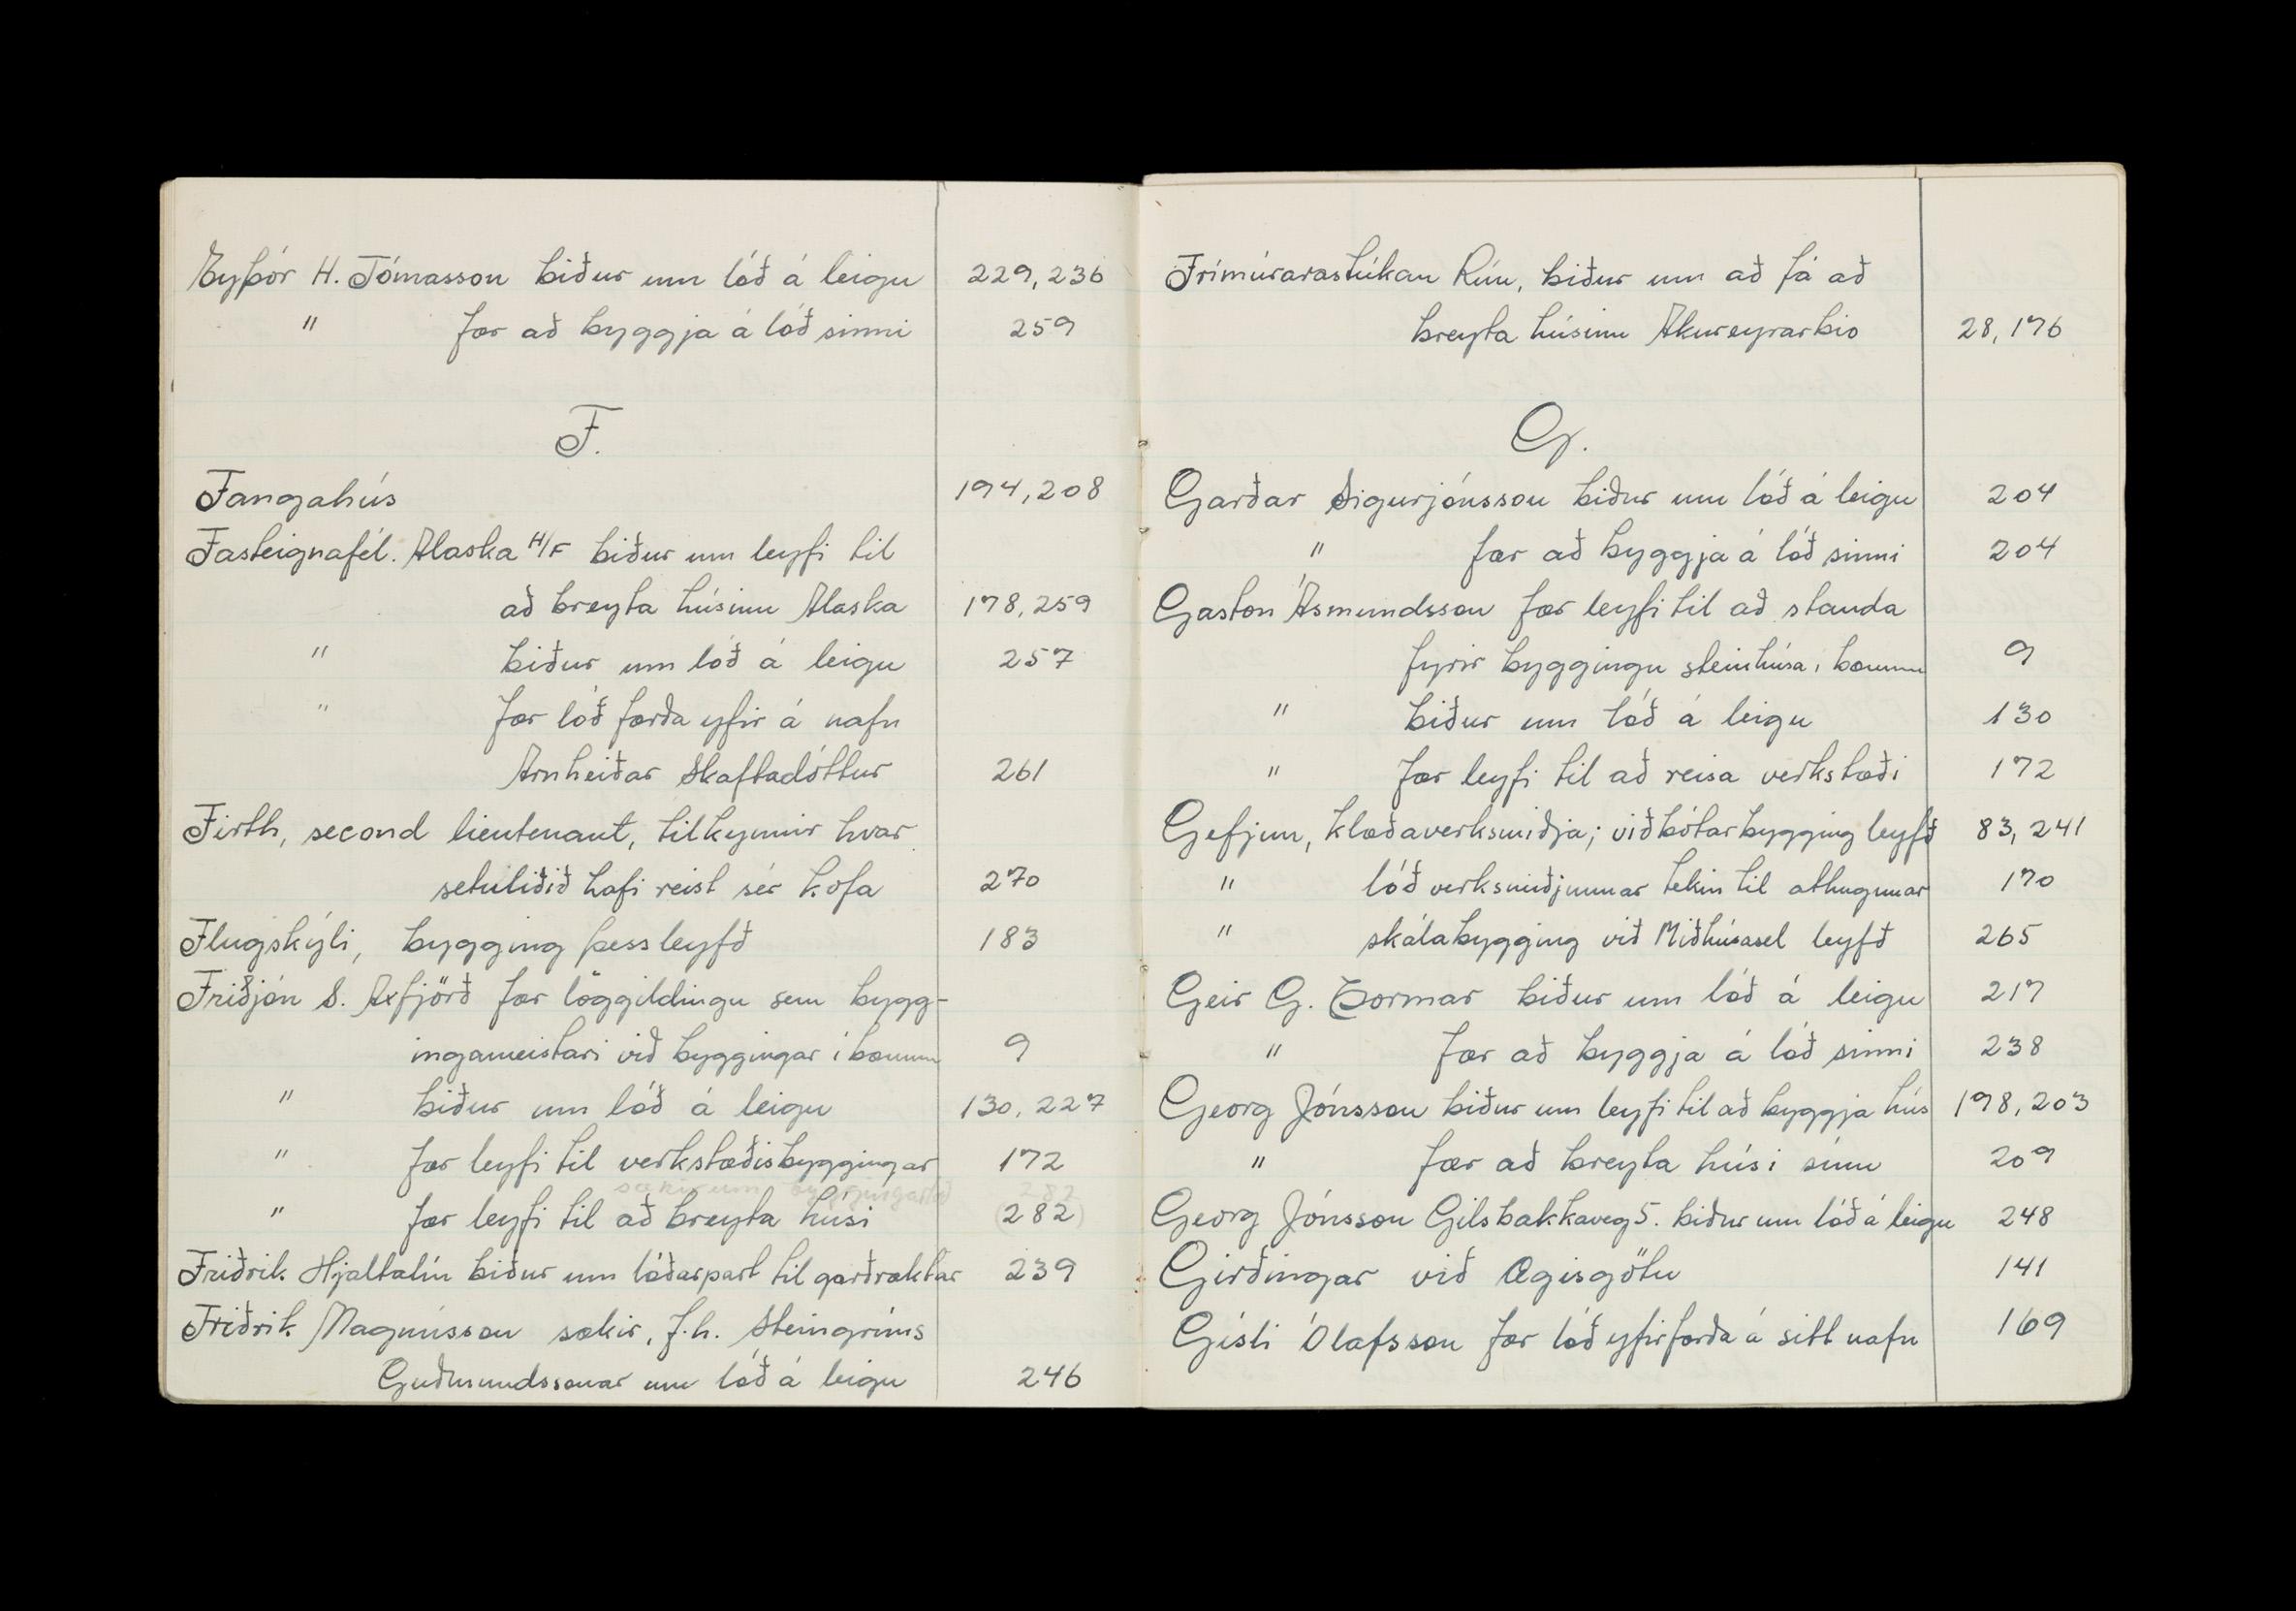 Eyþór H. Tómasson biður um lóð á leigu 229, 236
" fær að byggja á lóð sinni 259
F.
Fangahús 194, 208
Fasteignafél. Alaska H/F biður um leyfi til
að breyta húsinu Alaska 178, 259
" biður um lóð á leigu 257
" fær lóð færða yfir á nafn
Arnheiðar Skaftadóttur 261
Firth, second lieutenant, tilkynnir hvar
setuliðið hafi reist sér kofa 270
Flugskýli, bygging þess leyfð 183
Friðjón S. Axfjörð fær löggildingu sem bygg-
ingameistari við byggingar í bænum 9
" biður um lóð á leigu 130, 227
" fær leyfi til verkstæðisbyggingar 172
sækir um byggingarlóð 282
" fær leyfi til að breyta húsi (282)
Friðrik Hjaltalín biður um lóðarpart til garðræktar 239
Friðrik Magnússon sækir, f.h. Steingríms
Guðmundssonar um lóð á leigu 246
Frímúrarastúkan Rún, biður um að fá að
breyta húsinu Akureyrarbio 28, 176
G.
Garðar Sigurjónsson biður um lóð á leigu 204
" fær að byggja á lóð sinni 204
Gaston Ásmundsson fær leyfi til að standa
fyrir byggingu steinhúsa í bænum 9
" biður um lóð á leigu 130
" fær leyfi til að reisa verkstæði 172
Gefjun, klæðaverksmiðja; viðbótarbygging leyfð 83, 241
" lóð verksmiðjunnar tekin til athugunar 170
" skálabygging við Miðhúsasel leyfð 265
Geir G. Þormar biður um lóð á leigu 217
" fær að byggja á lóð sinni 238
Georg Jónsson biður um leyfi til að byggja hús 198, 203
" fær að breyta húsi sínu 209
Georg Jónsson Gilsbakkaveg 5. biður um lóð á leigu 248
Girðingar við Ægisgötu 141
Gísli Ólafsson fær lóð yfirfærða á sitt nafn 169